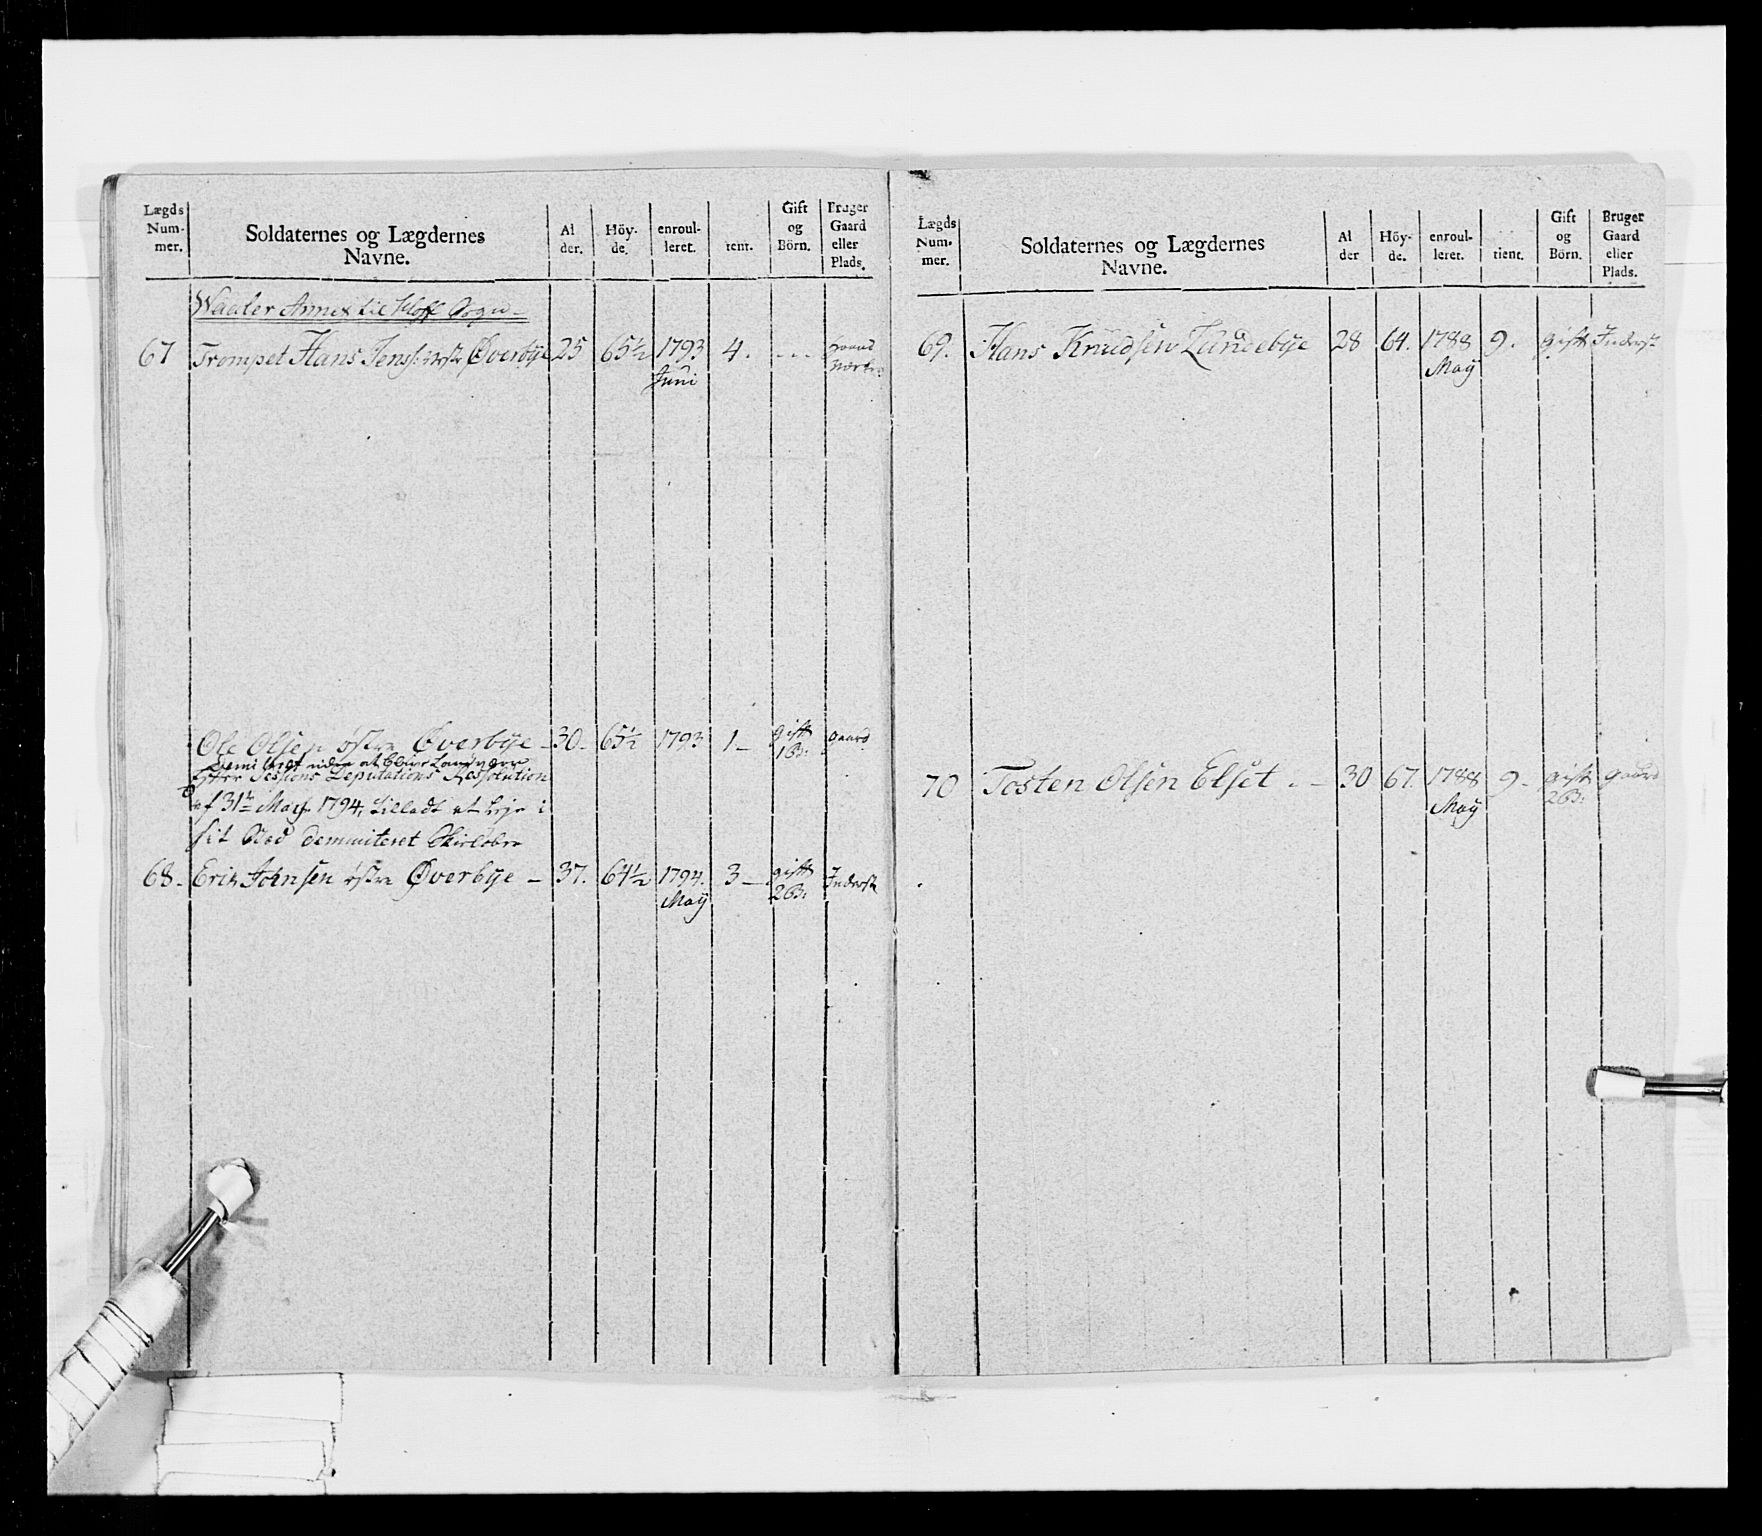 Lægds Num- mer.
Soldaternes og Lægdernes Navne.
Al der.
Höy- de.
enroul- leret.
tient.
Gift og Börn.
Bruger Gaard eller Plads.
Waaler Annex til Hoff Sogn
67 Trompet Hans Jens: Øverbye 25 65½ 1793 4. - - - gaard
Juni
Ole Olsen østre Øverbye - 30 - 65½ 1793 1 - gift gaard
1 B:
Efter Sessions Deputations Ressolution
af 31te Maij 1794, tilladt at leje i
sit Sted demmiteret Skieløber
68 - Erik Johnsen østre Øverbye - 37. 64½ 1794. 3 - gift Inderst
Maÿ 2 B:
Lægds Num- mer.
Soldaternes og Lægdernes Navne.
Al der
Höy- de.
enroul- leret.
tient.
Gift og Börn.
Bruger Gaard eller Plads.
69. Hans Knudsen Lundebye 28 64. 1788 9. gift Inderst
Maÿ
70 Tosten Olsen Elset . - 30 67. 1788 9 - gift gaard
Maÿ 2 B: